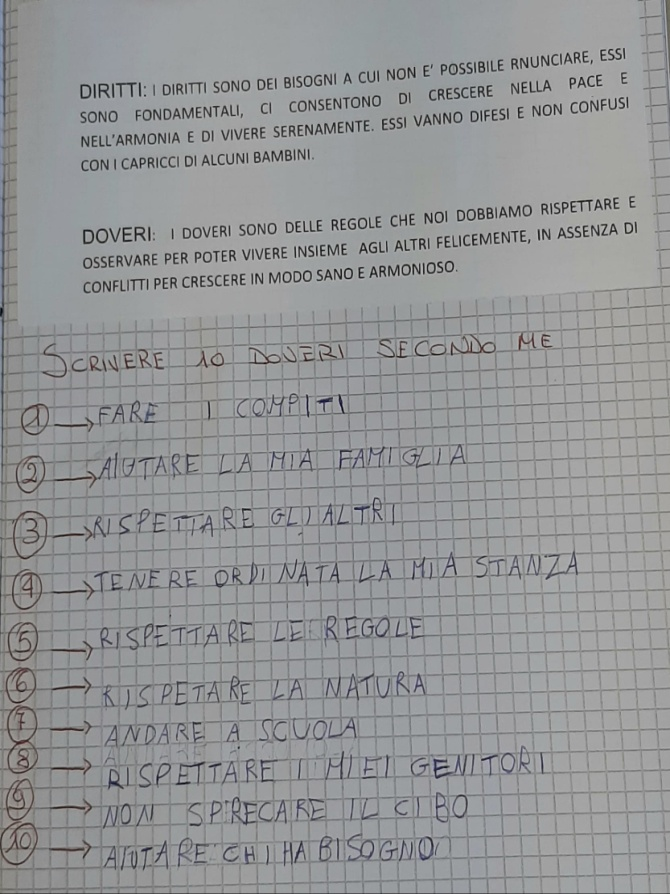 DIRITTI: I DIRITTI SONO DEI BISOGNI A CUI NON E' POSSIBILE RNUNCIARE, ESSI
SONO FONDAMENTALI, CI CONSENTONO DI CRESCERE NELLA PACE E
NELL'ARMONIA E DI VIVERE SERENAMENTE. ESSI VANNO DIFESI E NON CONFUSI
CON I CAPRICCI DI ALCUNI BAMBINI.
DOVERI: I DOVERI SONO DELLE REGOLE CHE NOI DOBBIAMO RISPETTARE E
OSSERVARE PER POTER VIVERE INSIEME AGLI ALTRI FELICEMENTE, IN ASSENZA DI
CONFLITTI PER CRESCERE IN MODO SANO E ARMONIOSO.
SCRIVERE 10 DOVERI SECONDO ME
1 → FARE I COMPITI
2 → AIUTARE LA MIA FAMIGLIA
3 → RISPETTARE GLI ALTRI
4 → TENERE ORDINATA LA MIA STANZA
5 → RISPETTARE LE REGOLE
6 → RISPETARE LA NATURA
7 → ANDARE A SCUOLA
8 → RISPETTARE I MIEI GENITORI
9 → NON SPRECARE IL CIBO
10 → AIUTARE CHI HA BISOGNO